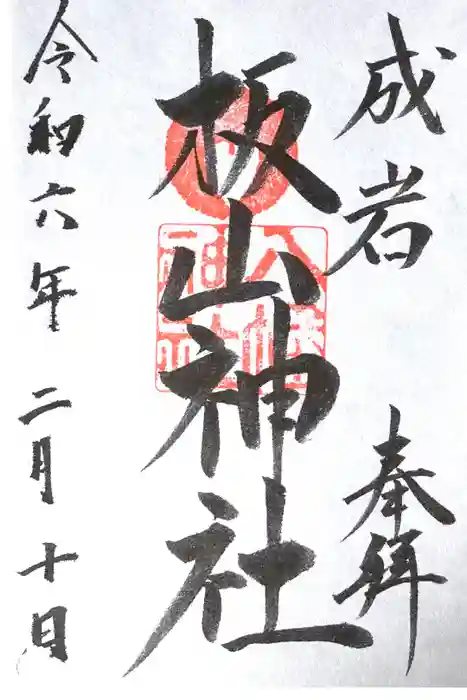 成岩 奉拝
板山神社
八幡神社
令和六年 二月 十日